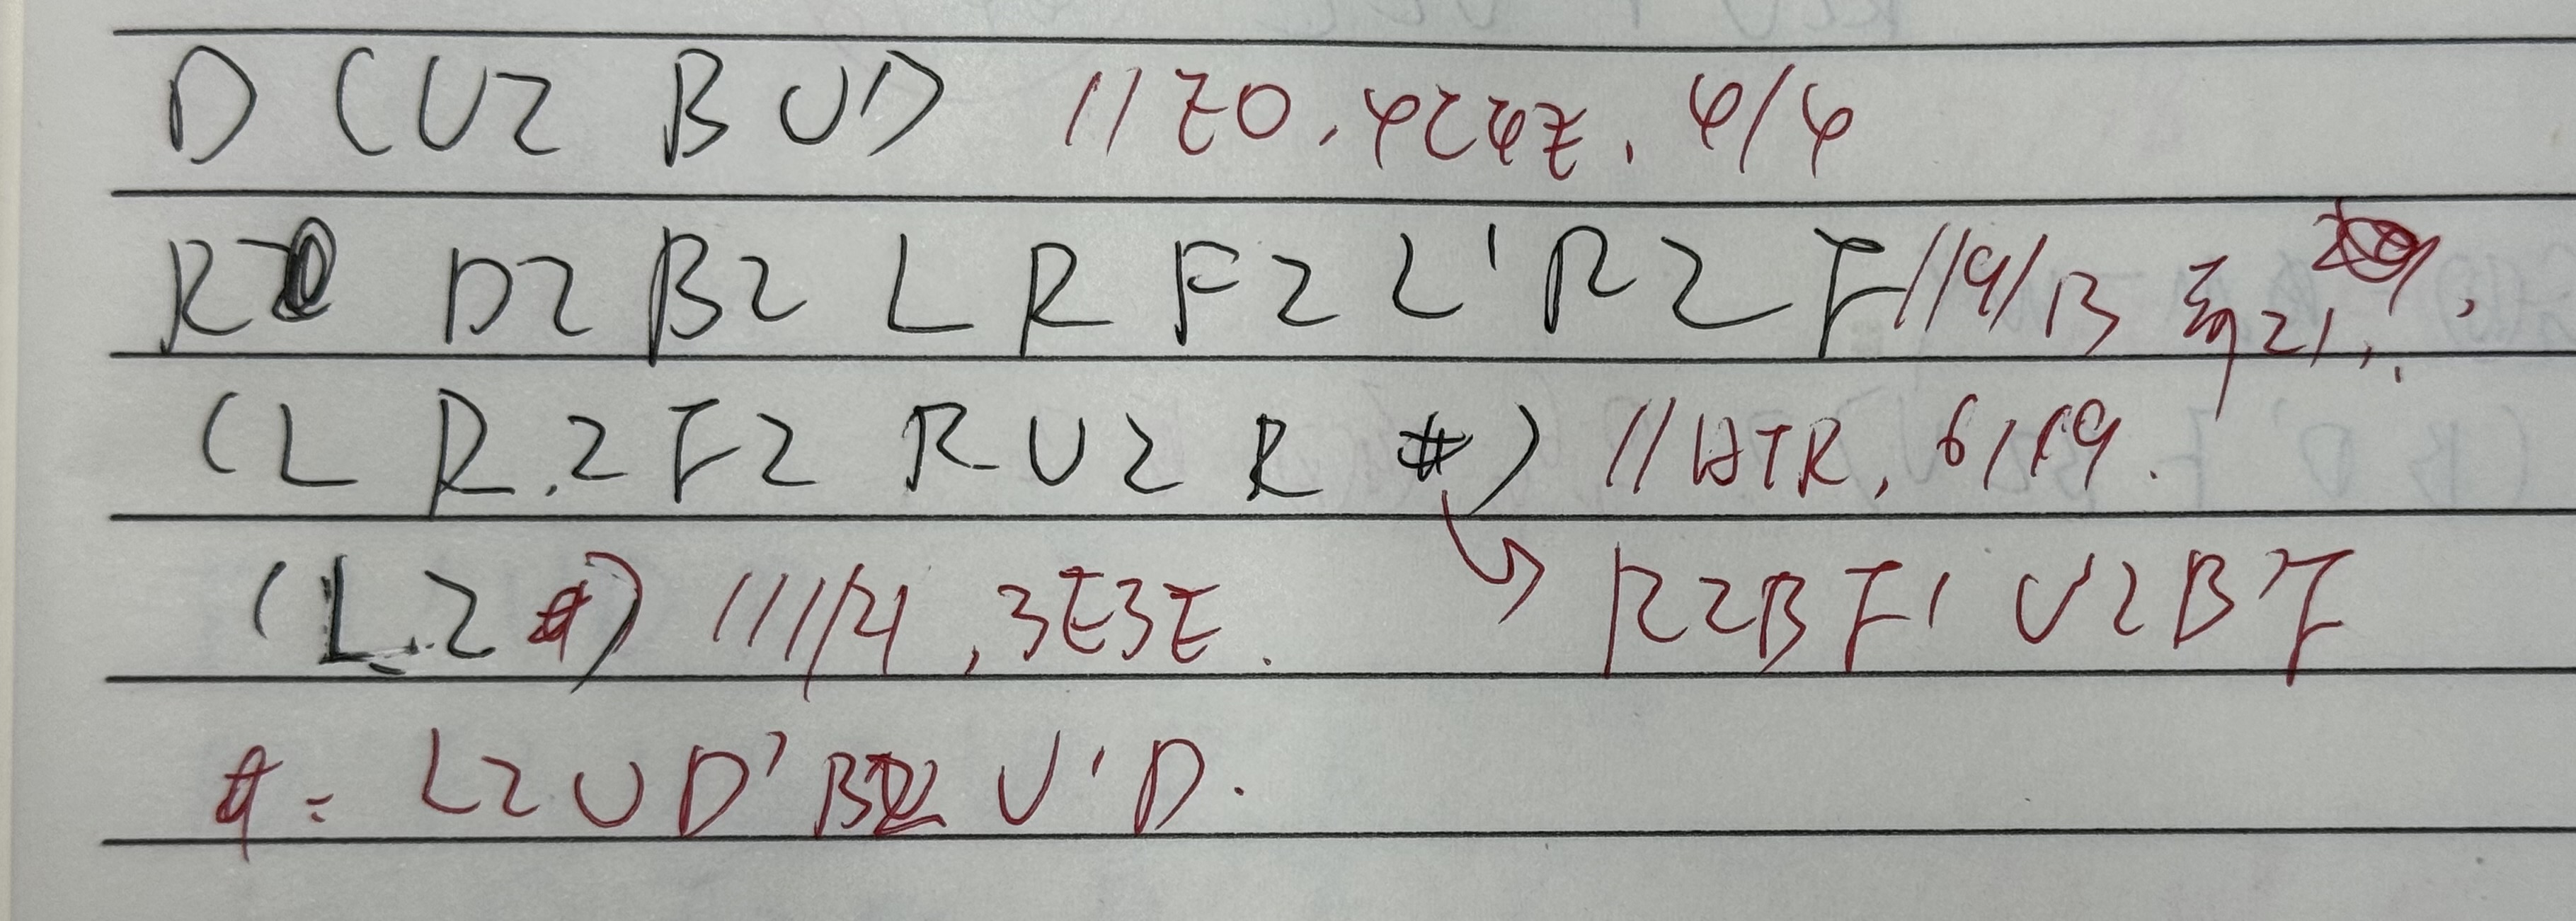 D (U2 B U) //EO, 4C4E, 4/4
R D2 B2 L R F2 L' R2 F //9/13 to 21,
(L R2 F2 R U2 R #) //HTR, 6/19.
(L2 #) //1/21, 3E3E. R2 B F' U2 B' F
#= L2 U D' B2 U' D.